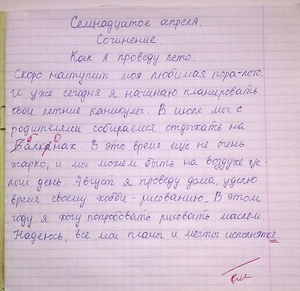 Семнадцатое апреля.
Сочинение.
Как я проведу лето.
Скоро наступит моя любимая пора-лето.
И уже сегодня я начинаю планировать
свои летние каникулы. В июле мы с
родителями собираемся отдыхать на
Балканах. В это время ещё не очень
жарко, и мы можем быть на воздухе це-
лый день. Август я проведу дома, уделю
время своему хобби - рисованию. В этом
году я хочу попробовать рисовать маслом.
Надеюсь, все мои планы и мечты исполнятся.